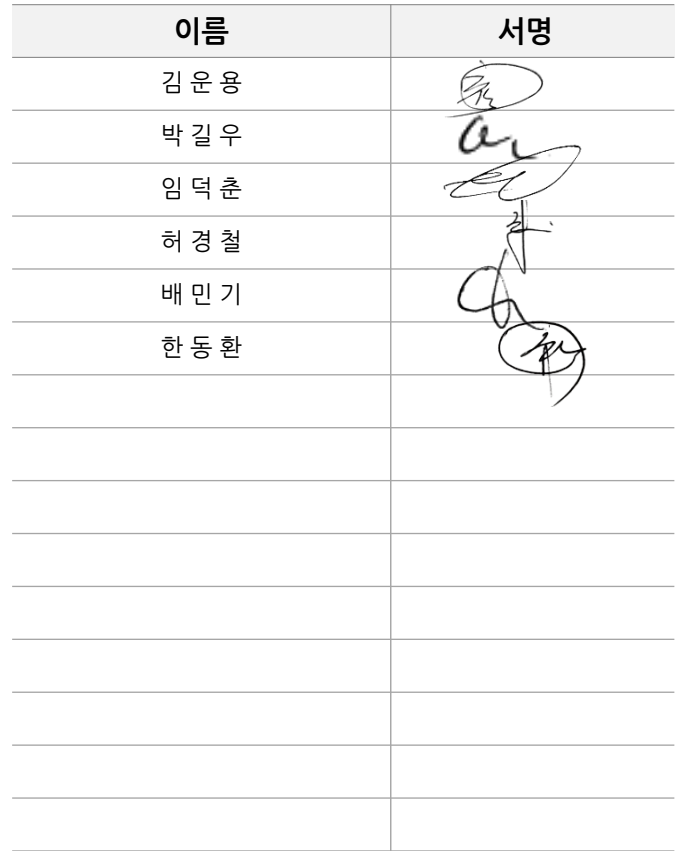 이름 서명
김 운 용
박 길 우
임 덕 춘
허 경 철
배 민 기
한 동 환